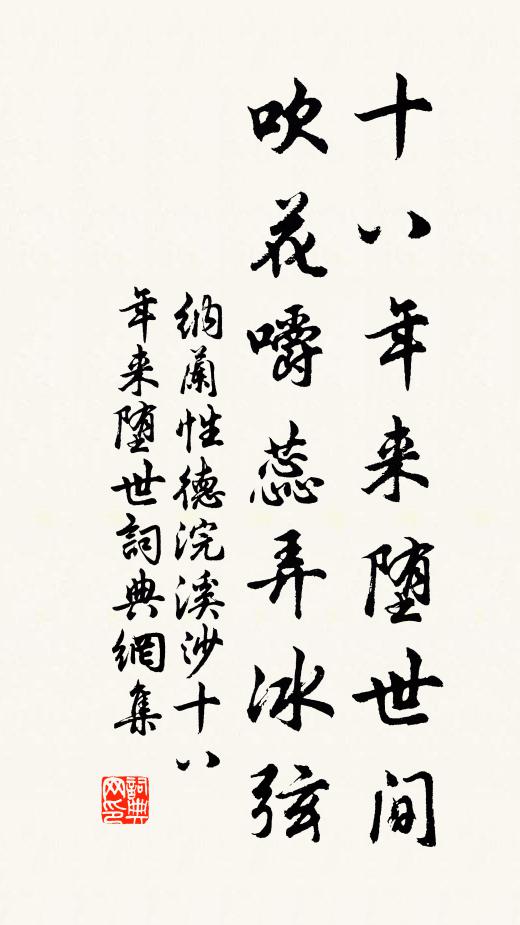 十八年来堕世间
吹花嚼蕊弄冰弦
納蘭性德浣溪沙十八
年来堕世詞典網集
詞典網印